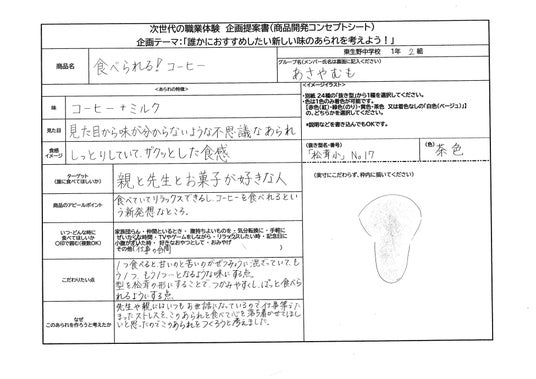 次世代の職業体験 企画提案書(商品開発コンセプトシート)
企画テーマ:「誰かにおすすめしたい新しい味のあられを考えよう!」
東生野中学校 1年 2組
商品名
食べられる!コーヒー
グループ名(メンバー氏名は裏面に記入ください)
あさやむも
<あられの特徴>
味
コーヒー+ミルク
見た目
見た目から味が分からないような不思議なあられ
食感
イメージ
しっとりしていて、ザクッとした食感
ターゲット
(誰に食べてほしいか)
親と先生とお菓子が好きな人
商品のアピールポイント
食べていてリラックスできるし、コーヒーを食べれると
いう新発想なところ。
いつ・どんな時に
食べてほしいか
〇印で囲む(複数OK)
家族団らん・仲間といるとき・腹持ちよいものを・気分転換に・手軽に
ぜいたくな時間・TVやゲームをしながら・リラックスしたい時・記念日に
小腹がすいた時・好きなおやつとして・おみやげ
その他(仕事の合間)
こだわりたい点
1つ食べると、甘いのと苦いのがぜつみょうに混ざっていて、も
う1つ、もう1つ…となるような味にする点。
型を松茸の形にすることで、つかみやすくし、ぱっと食べら
れるようにする点。
なぜ
このあられを作ろうと考えたか
先生や親にはいつもお世話になっているので仕事等でた
まったストレスを、このあられを食べて心を落ち着かせてほし
いと思ったのでこのあられをつくろうと考えました。
<イメージイラスト>
・別紙 24種の「抜き型」から1種を選択してください。
・色は1色のみ着色が可能です。
【赤色(紅)・緑色(のり)・黄色・茶色 又は着色なしの「白色(ベージュ)」】
の、どれかを選択してください。
*説明などを書き込んでもOKです。
(抜き型名・番号)
「松茸小」No.17
(色)
茶色
(実寸にこだわらず、枠内に描いてください)